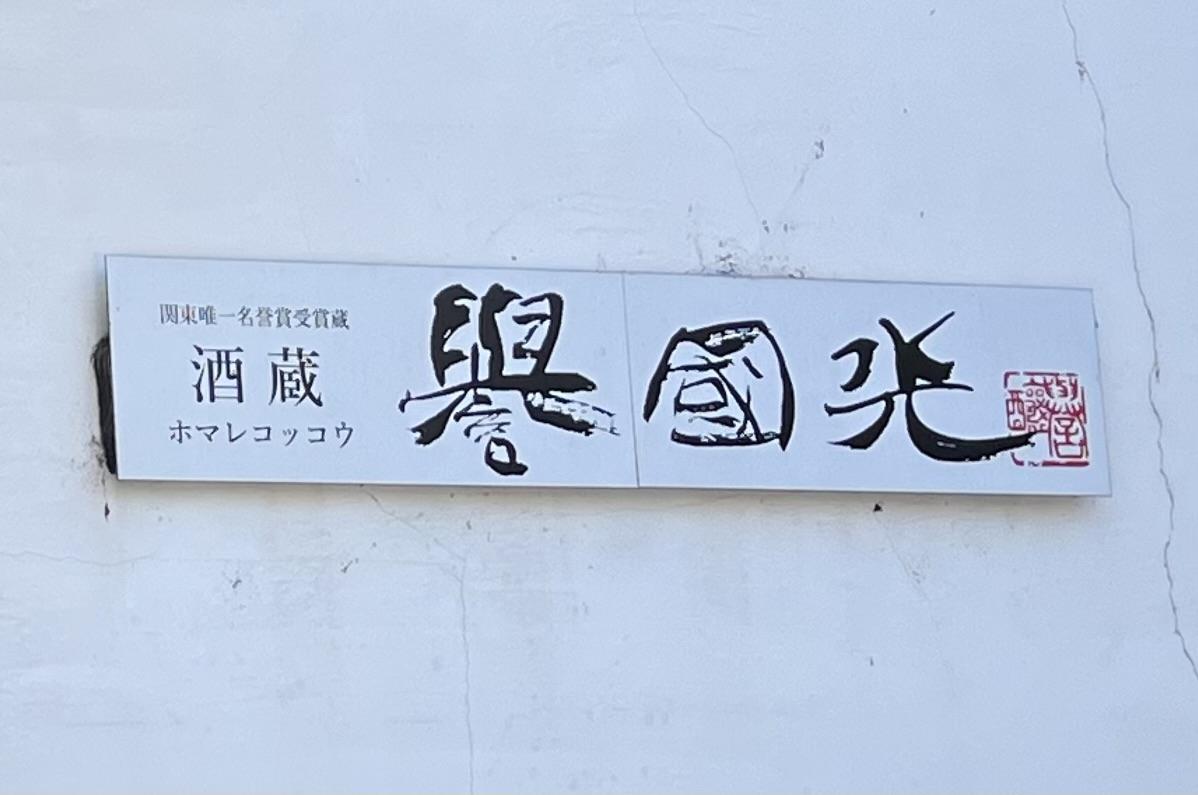 関東唯一名誉賞受賞蔵
酒蔵
ホマレコッコウ
譽國光